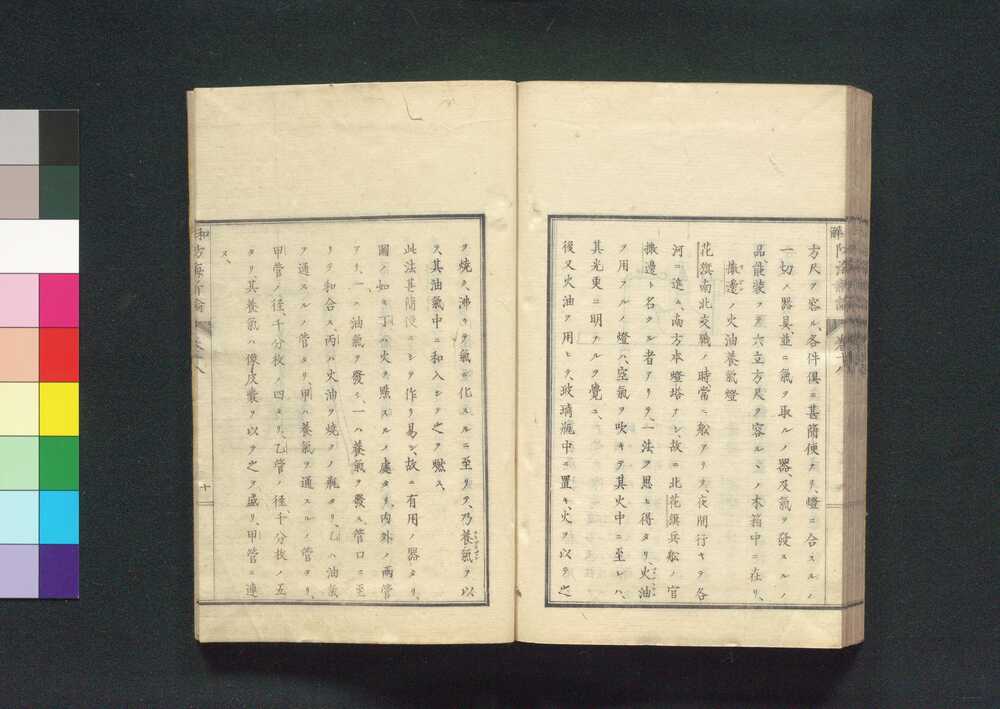 方尺ヲ容ル、各件俱ニ甚簡便ナリ、燈ニ合スルノ
一切ノ器具、並ニ氣ヲ取ルノ器、及氣ヲ發スルノ
品、嚴裝ヲ六立方尺ヲ容ルヽノ木箱中ニ在リ、
撒邊ノ火油養氣燈
花旗南北交戰ノ時、當ニ船アリテ、夜間行キテ各
河ニ進ム、南方本燈塔ナシ、故ニ北花旗兵船ノ官
撒邊ト名クル者アリテ、一法ヲ思ヒ得タリ、火油
ヲ用フルノ燈ハ、空氣ヲ吹キテ其火中ニ至レハ、
其光更ニ明ナルヲ覺ユ、
後又火油ヲ用ヒテ、玻璃瓶中ニ置キ、火ヲ以テ之
ヲ燒ク、沸キテ氣ニ化スルニ至リテ、乃養氣ヲ以
テ其油氣中ニ和入シテ之ヲ燃ス、
此法甚簡便ニシテ作リ易シ、故ニ有用ノ器タリ、
圖ノ如キ丁ハ火ヲ點スルノ處タリ、內外ノ兩管
アリ、一ハ油氣ヲ發シ、一ハ養氣ヲ發ス、管口ニ至
リテ和合ス、丙ハ火油ヲ燒クノ瓶タリ、乙ハ油氣
ヲ通スルノ管タリ、甲ハ養氣ヲ通スルノ管タリ、
甲管ノ徑、千分枚ノ四タリ、乙管ノ徑、千分枚ノ五
タリ、其養氣ハ像皮囊ヲ以テ之ヲ盛リ、甲管ニ連
ス、
十